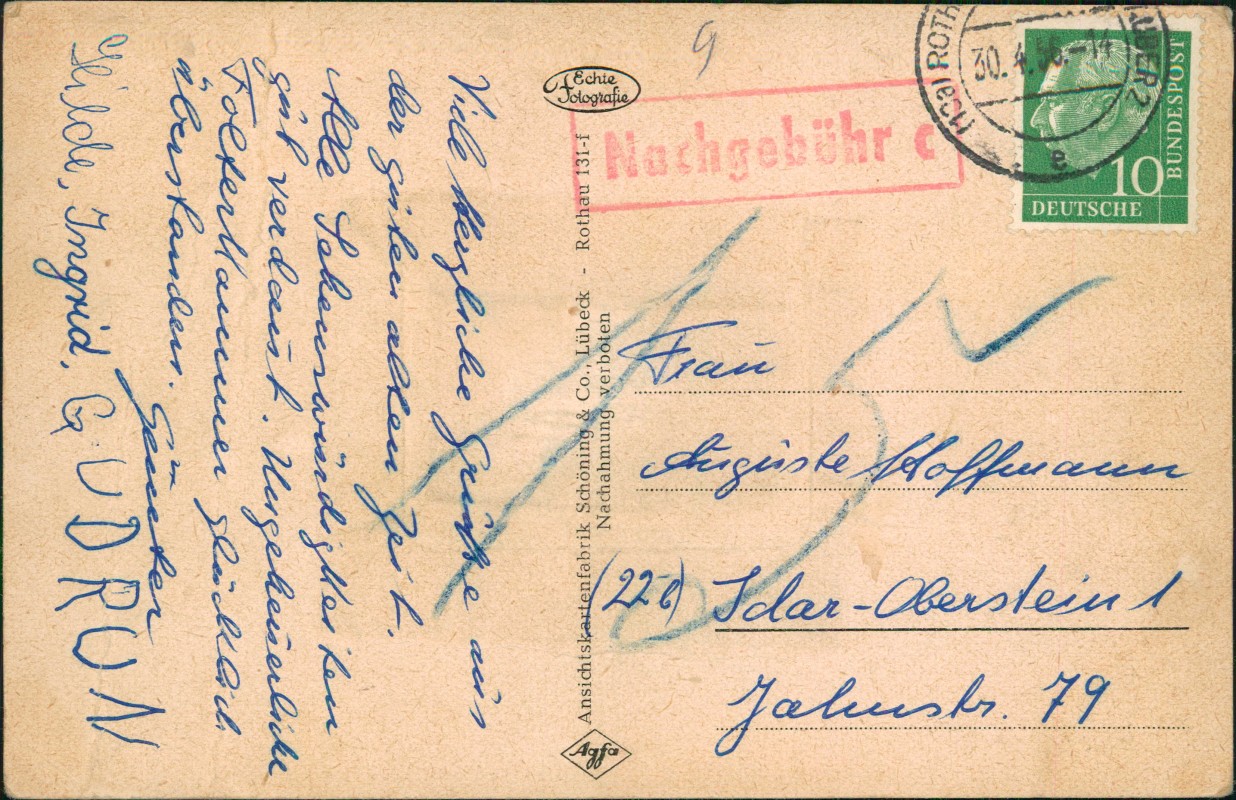 Viele herzliche Grüße aus
der guten alten Zeit.
Alle Sehenswürdigkeiten
gut verdaut. Ungeheuerliche
Folterkammer glücklich
überstanden.
Günter
Hilde, Ingrid, GUDRUN
Echte
Fotografie
Ansichtskartenfabrik Schöning & Co., Lübeck - Rothau 131-f
Nachahmung verboten
Agfa
9
Nachgebühr c
(13a) ROTH UBER 2
30.4.56.-14
e
10
DEUTSCHE
BUNDESPOST
15
Frau
Auguste Hoffmann
(22b) Idar-Oberstein 1
Jahnstr. 79